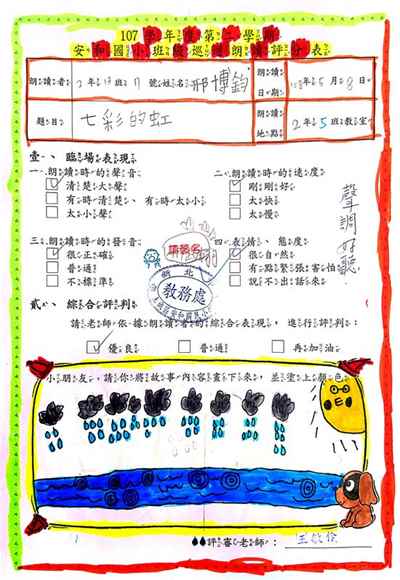 107學年度第二學期
安和國小班級巡迴朗讀評分表
朗讀者 2年13班11號姓名 邢博鈞 朗讀日期 月8日
題目 七彩的虹 朗讀地點 2年5班教室
壹、臨場表現
一、朗讀時的聲音
清楚大聲
有時清楚、有時太小
太小聲
二、朗讀時的速度
剛剛好
太快
太慢
聲調好聽
三、朗讀時的發音
很正確
普通
不標準
四、表情、態度
很自然
有點緊張害怕
說不出話來
請簽名
教務處
貳、綜合評判
請老師依據朗讀者的綜合表現，進行評判：
優良 普通 再加油
小朋友，請你將故事內容畫下來，並塗上顏色
評審老師：